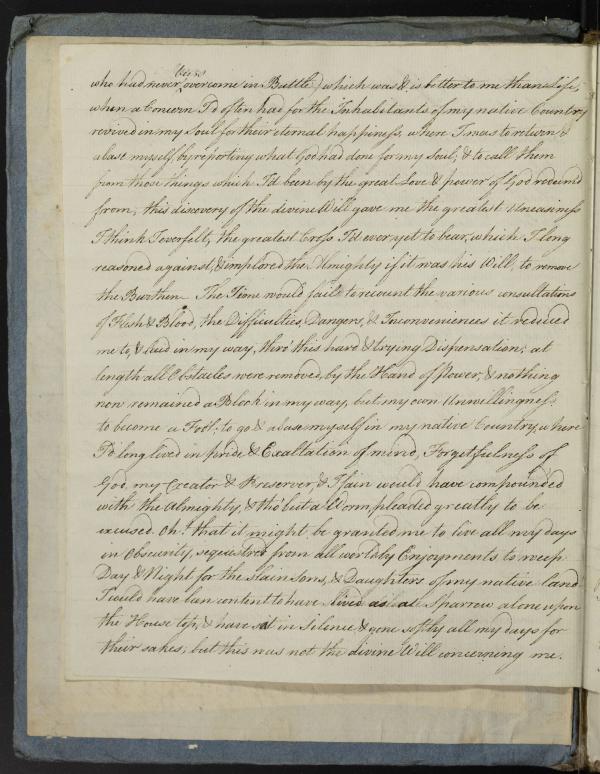 been
who had never overcome in Battle) which was & is better to me than Life,
when a Concern I'd often had for the Inhabitants of my native Country
revived in my Soul for their eternal happiness, where I was to return &
abase myself by reporting what God had done for my Soul, & to call them
from those things which I'd been by the great Love & power of God redeemed
from, this discovery of the divine Will gave me the greatest Uneasiness
I think I ever felt, the greatest Cross I'd ever yet to bear, which I long
reasoned against, & implored the Almighty if it was his Will, to remove
the Burthen. The Time would fail to recount the various consultations
of Flesh & Blood, the Difficulties, Dangers, & Inconveniences it reduced
me to, & laid in my way, thro' this hard & trying Dispensation; at
length all Obstacles were removed, by the Hand of Power, & nothing
now remained a Block in my way, but my own Unwillingness
to become a Fool, to go & abase myself in my native Country, where
I'd long lived in pride & Exaltation of mind, Forgetfulness of
God, my Creator & Preserver, & I fain would have compounded
with the Almighty, & tho' but a Worm pleaded greatly to be
excused. Oh! that it might be granted me to live all my days
in Obscurity, sequestred from all worldly Enjoyments to weep
Day & Night for the slain Sons, & Daughters of my native land
I would have been content to have lived as a Sparrow alone upon
the House top, & have sat in Silence & gone softly all my days for
their sakes, but this was not the divine Will concerning me.